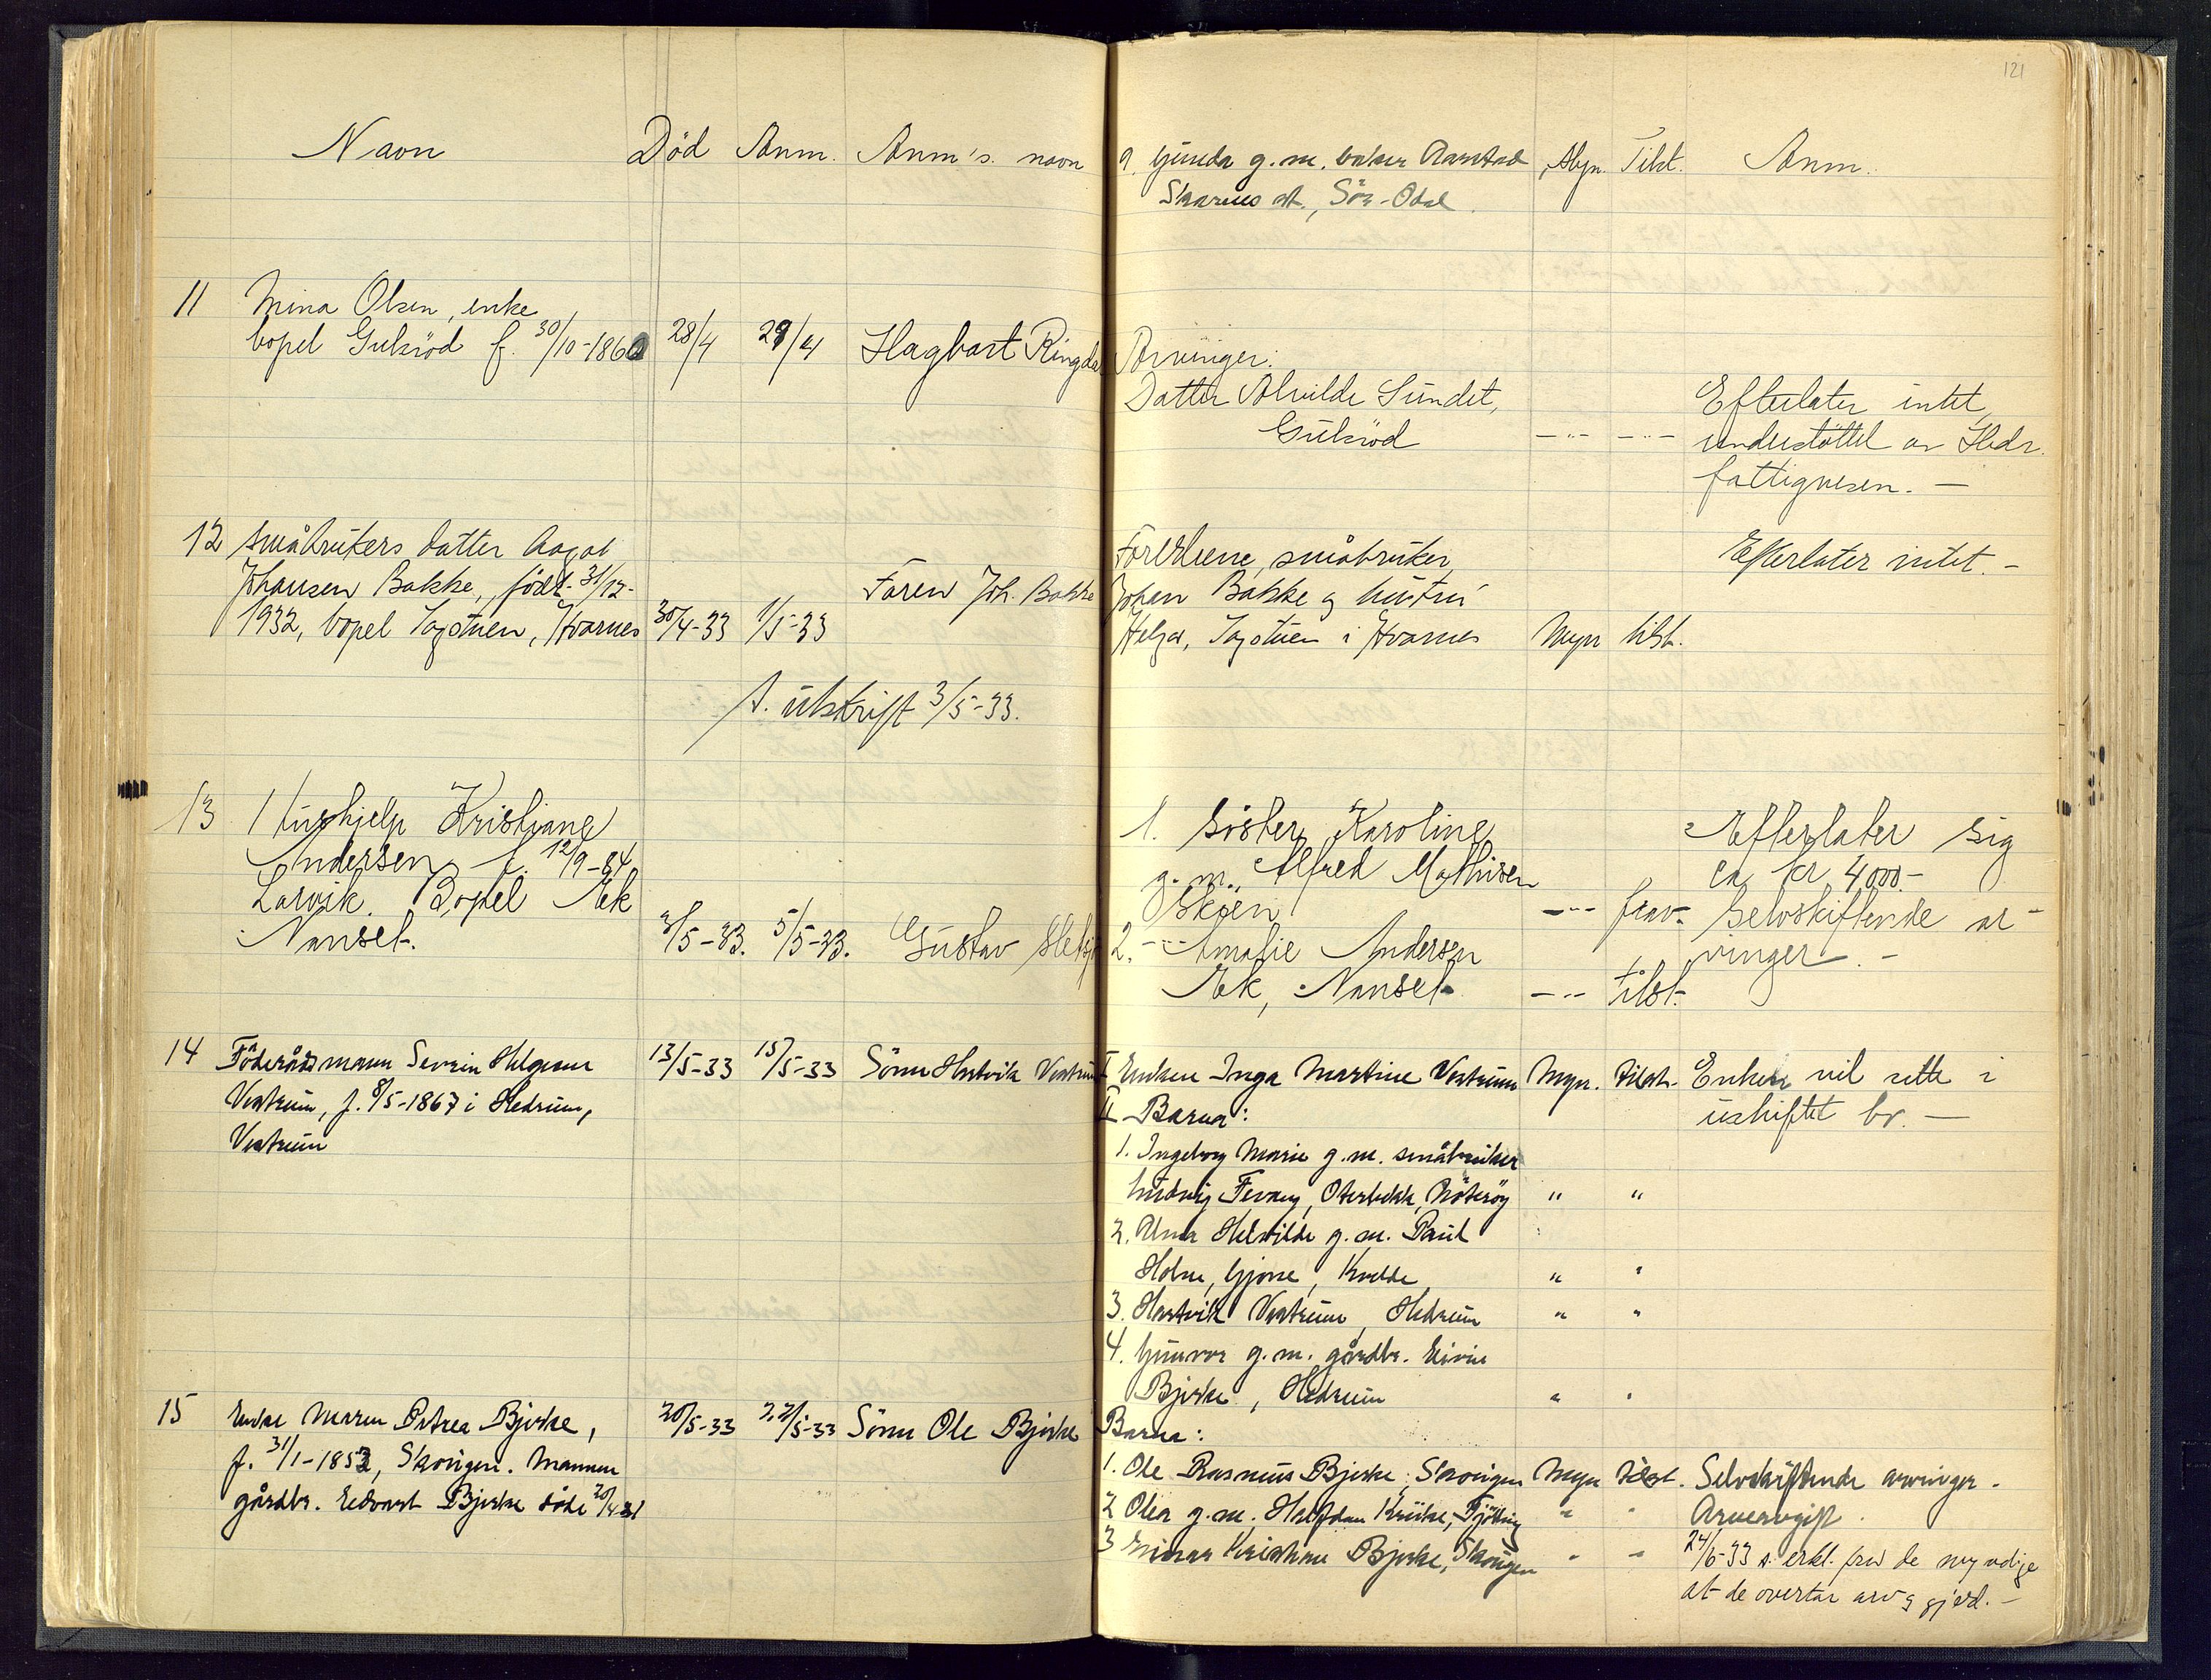 121
Navn Död Anm. Anm's. navn
9. Gunda g.m. baker Aarstad Myn. Tilst. Anm.
Skarnes st., Sör-Odal
11 Mina Olsen, enke
bopel Gulsröd f. 30/10-1860 28/4 29/4 Hagbart Ringda
12 småbrukers datter Aagot
Johansen Bakke, född 31/12-
1932, bopel Sagstuen, Hvarnes 30/4-33 1/5-33 Faren Joh. Bakke
s. utskrift 3/5-33.
13 Hushjelp Kristiane
Andersen f. 12/9-84
Larvik. Bopel Æk
Nanset. 3/5-33. 5/5-33. Gustav
14 Föderådsmann Sevrin Helgesen
Vestrum, f. 8/5-1867 i Hedrum,
Vestrum 13/5-33 15/5-33 Sönn Hartvik Vestrum
15 Enke Maren Petrea Bjerke,
f. 31/1-1853, Skougen. Mannen
gårdbr. Edvart Bjerke döde 20/4-31 20/5-33 22/5-33 Sönn Ole Bjerke
Arvinger:
Datter Alvilde Sundet,
Gulsröd -"- -"- Efterlater intet,
understöttet av Hedr.
fattigvesen. -
Foreldrene, småbruker
Johan Bakke og hustru
Helga, Sagstuen i Hvarnes Myn tilst. Efterlater intet. -
1. Söster Karoline
g.m. Alfred Mathisen
Skien -"- frav. Efterlater sig
ca kr 4000.-
Selvskiftende ar-
vinger. -
2. -"- Amalie Andersen
Æk, Nanset -"- tilst.
I Enken Inga Martine Vestrum Myn. tilst. Enken vil sitte i
uskiftet bo. -
II Barna:
1. Ingeborg Marie g.m. småbruker
Ludvig Fevang, Oterbekk, Nöteröy " "
2. Anna Helvilde g.m. Paul
Holm, Gjone, Kvelde " "
3. Hartvik Vestrum, Hedrum " "
4. Gunvor g.m. gårdbr. Eivin
Bjerke, Hedrum " "
Barna:
1. Ole Rasmus Bjerke, Skougen Myn tilst. Selvskiftende arvinger.
2 Olea g.m. Halfdan Kruke, Tjölling " " Arveavgift.
3 Einar Kristian Bjerke, Skougen " " 24/6-33 s. erkl. fra de myndige
at de overtar arv og gjeld. -